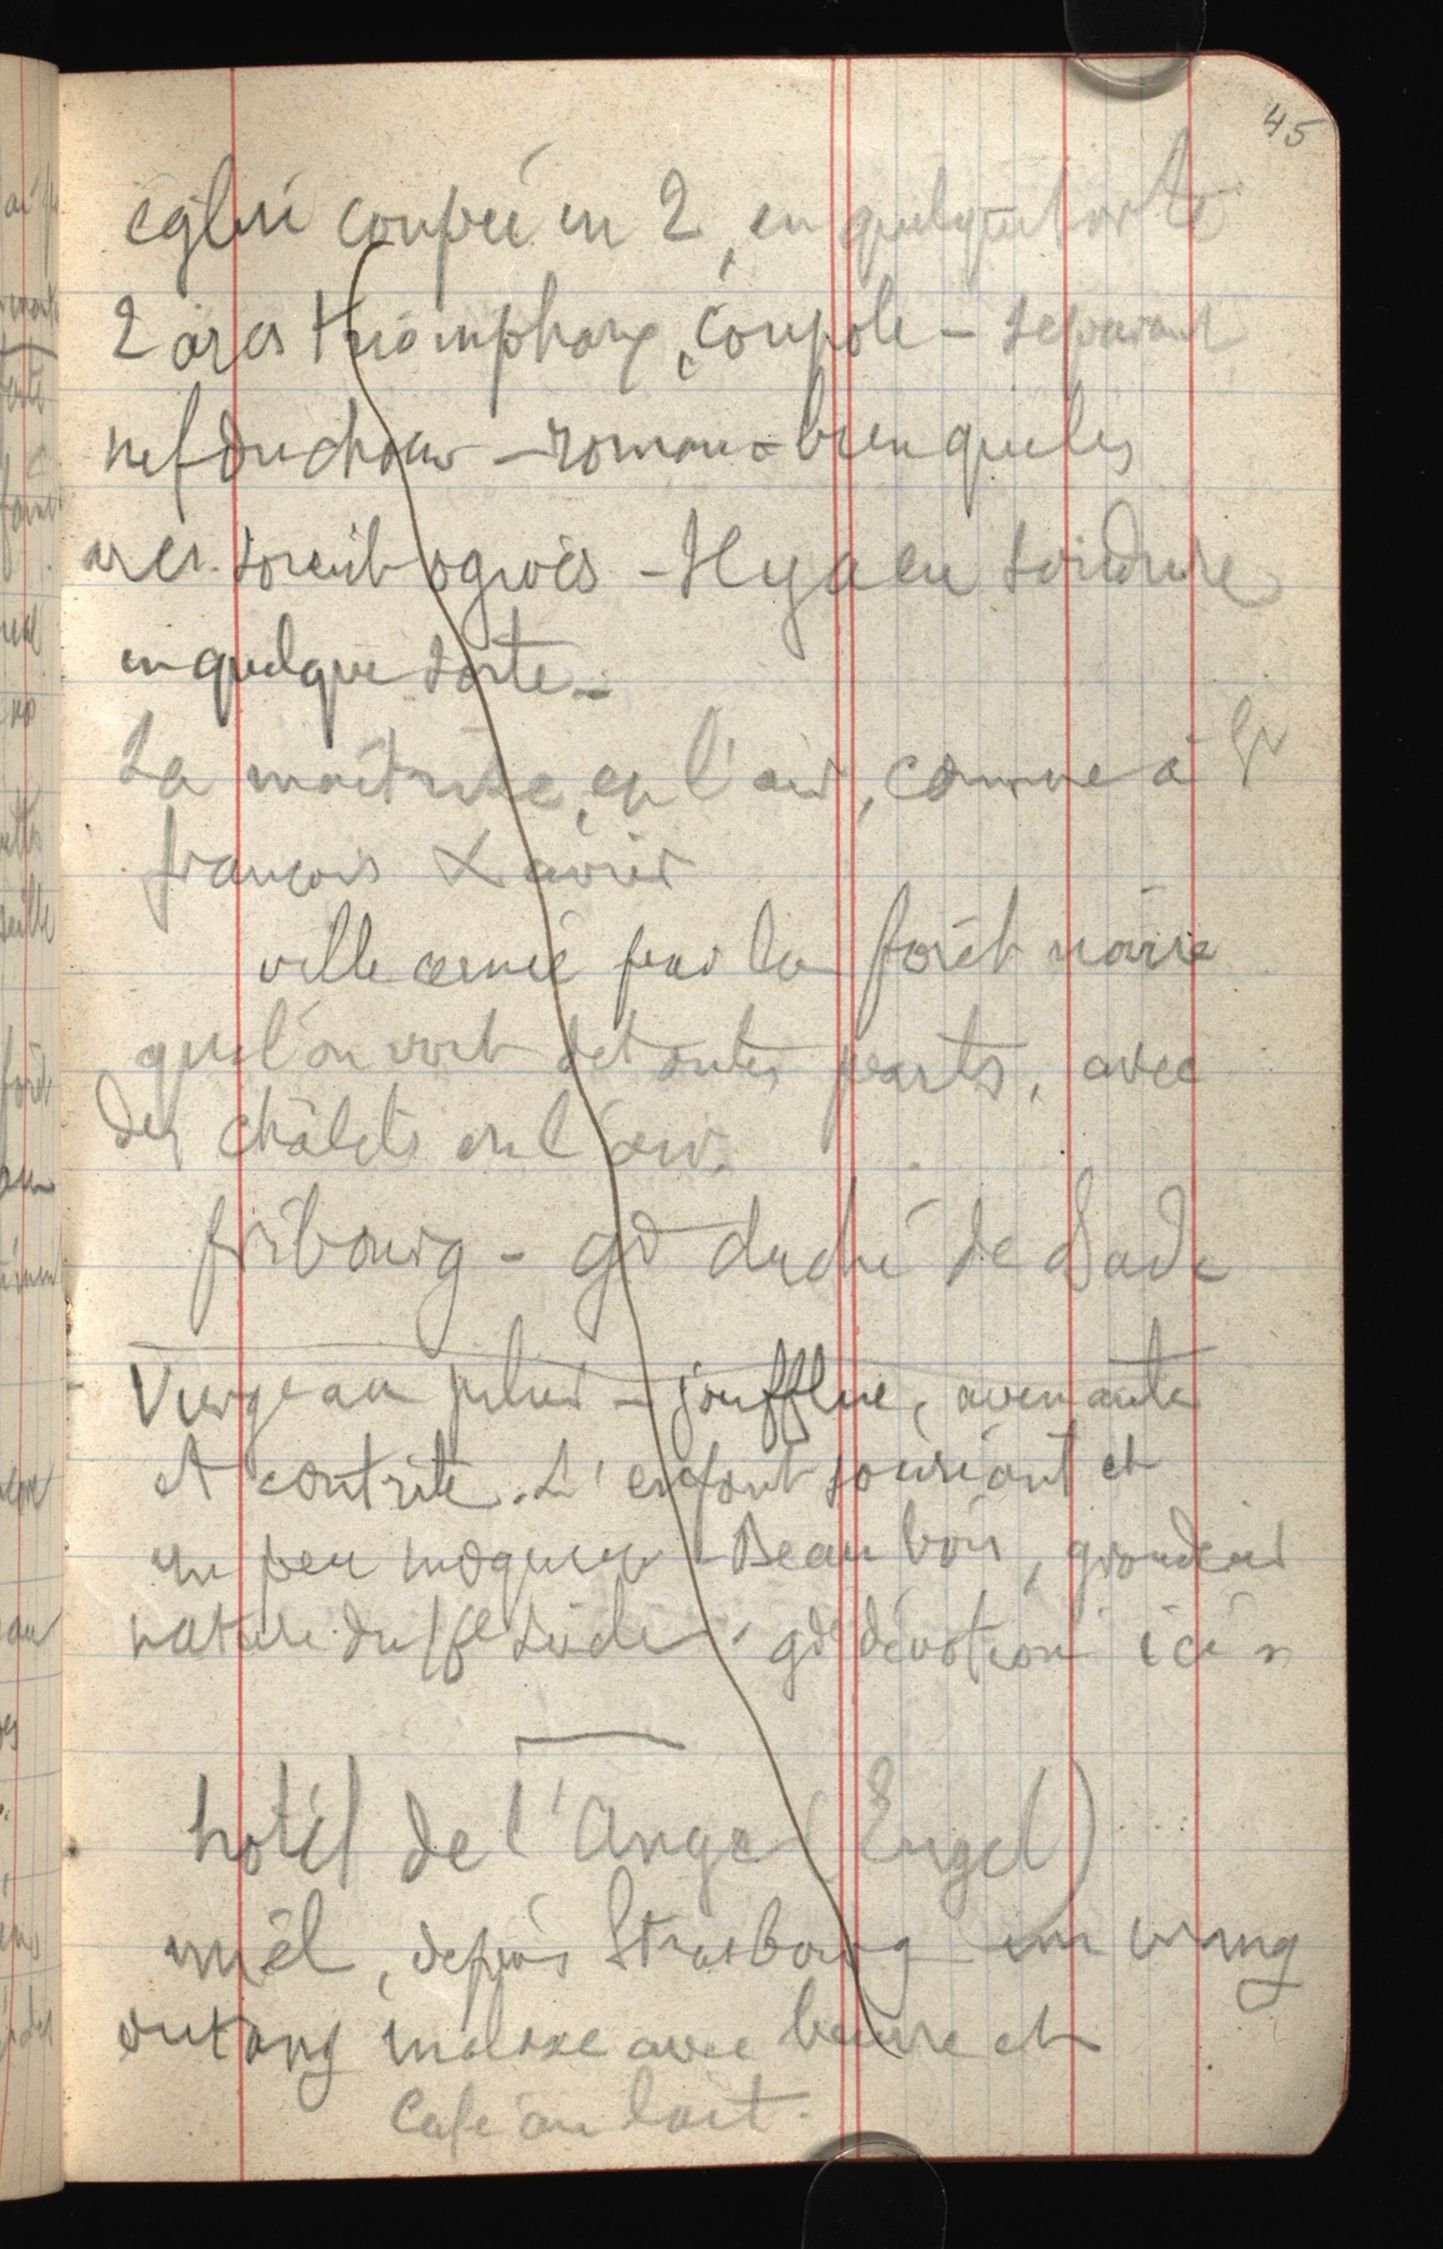 45
église coupée en 2, en quelque sorte
2 arcs triomphaux, coupole – séparant
nef du chœur – romane bien que les
arcs soient ogivés – Il y a eu soudure
en quelque sorte –
La maîtrise, en l'air, comme à St
François Xavier
ville cernée par la forêt noire
que l'on voit de toutes parts, avec
des châlets en l'air.
fribourg – gd duché de Bade
Vierge au pilier – joufflue, avenante
et contrite. L'enfant souriant et
un peu moqueur – Beau bois, grandeur
nature du siècle. gde dévotion ici
hotel de l'Ange (Engel)
miel, depuis Strasbourg un orang
outang malaxe avec beurre et
Café au lait.